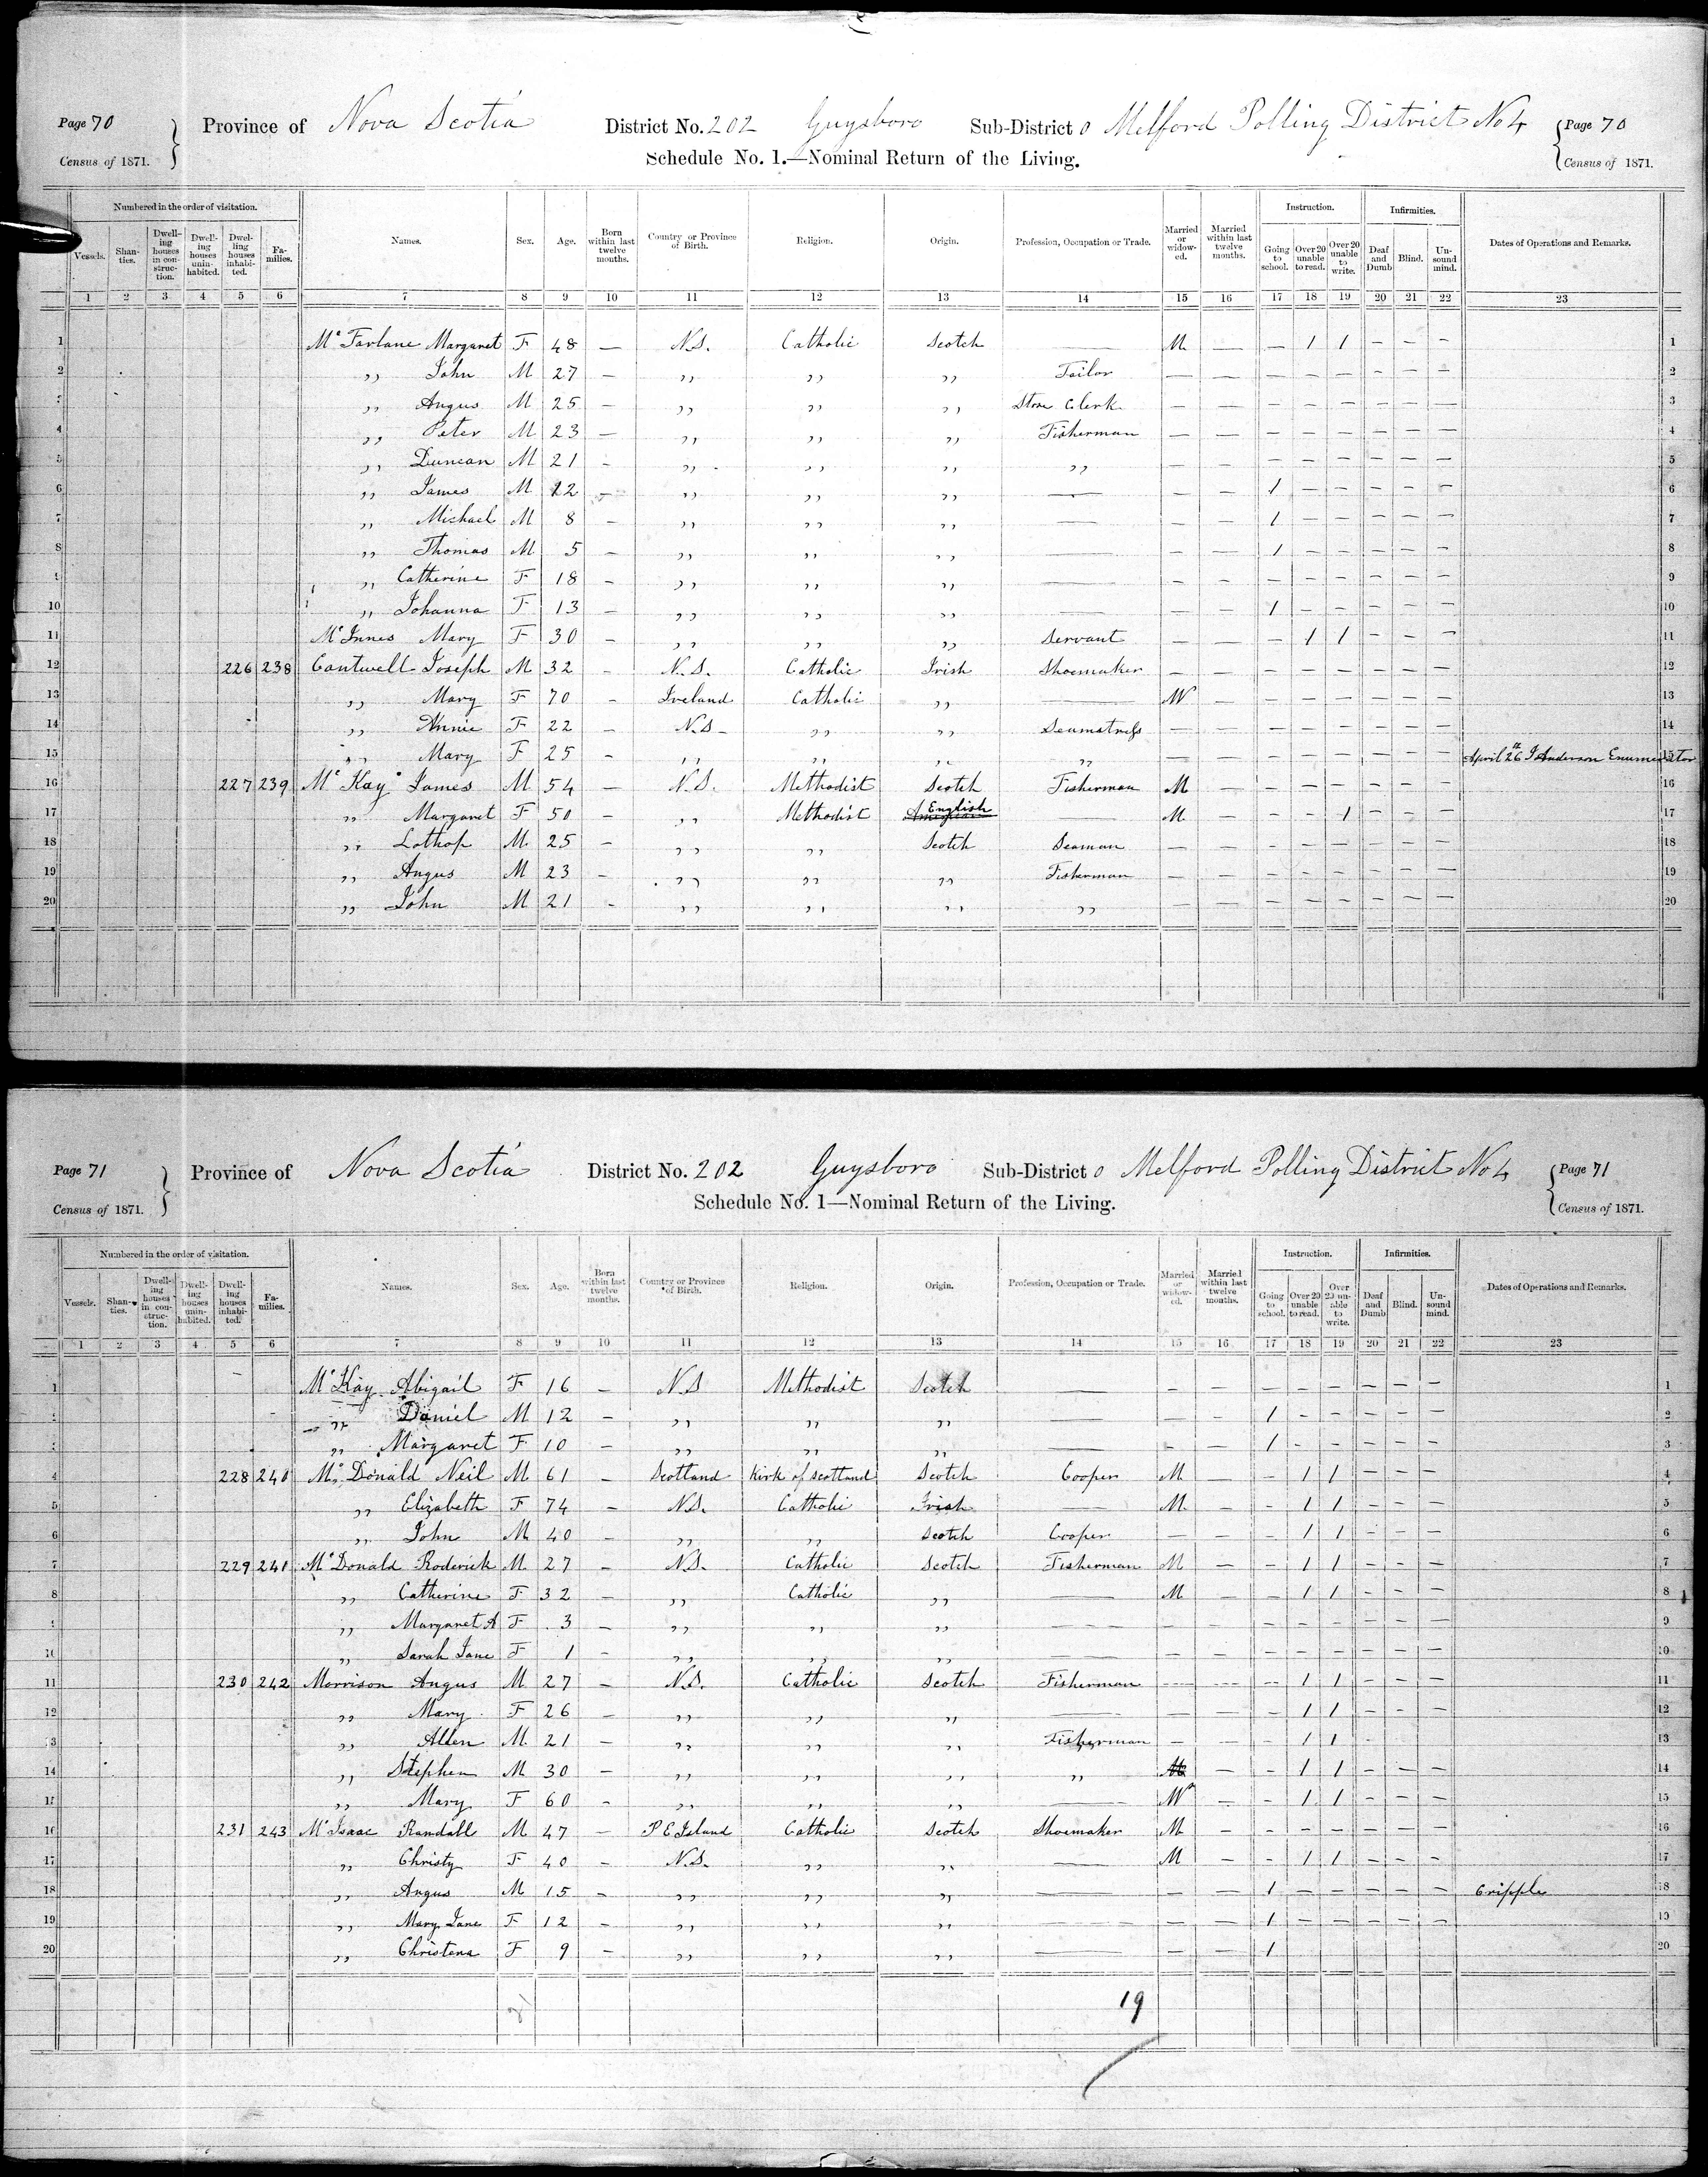 Page 70 Province of Nova Scotia District No. 202 Guysboro Sub-District o Melford Polling District No 4 Page 70
Census of 1871. Schedule No. 1.—Nominal Return of the Living. Census of 1871.
Numbered in the order of visitation. Instruction. Infirmities.
Vessels. Shanties. Dwelling houses in construction. Dwelling houses uninhabited. Dwelling houses inhabited. Families. Names. Sex. Age. Born within last twelve months. Country or Province of Birth. Religion. Origin. Profession, Occupation or Trade. Married or widowed. Married within last twelve months. Going to school. Over 20 unable to read. Over 20 unable to write. Deaf and Dumb Blind. Unsound mind. Dates of Operations and Remarks.
1 2 3 4 5 6 7 8 9 10 11 12 13 14 15 16 17 18 19 20 21 22 23
1 Mc Farlane Margaret F 48 — N.S. Catholic Scotch — M — — 1 1 — — — 1
2 ,, John M 27 — ,, ,, ,, Tailor — — — — — — — — 2
3 ,, Angus M 25 — ,, ,, ,, Store Clerk — — — — — — — — 3
4 ,, Peter M 23 — ,, ,, ,, Fisherman — — — — — — — — 4
5 ,, Duncan M 21 — ,, ,, ,, ,, — — — — — — — — 5
6 ,, James M 12 — ,, ,, ,, — — — 1 — — — — — 6
7 ,, Michael M 8 — ,, ,, ,, — — — 1 — — — — — 7
8 ,, Thomas M 5 — ,, ,, ,, — — — 1 — — — — — 8
9 ,, Catherine F 18 — ,, ,, ,, — — — — — — — — — 9
10 ,, Johanna F 13 — ,, ,, ,, — — — 1 — — — — — 10
11 Mc Innes Mary F 30 — ,, ,, ,, Servant — — — 1 1 — — — 11
12 226 238 Cantwell Joseph M 32 — N.S. Catholic Irish Shoemaker — — — — — — — — 12
13 ,, Mary F 70 — Ireland Catholic ,, — W — — — — — — — 13
14 ,, Annie F 22 — N.S — ,, ,, Seamstress — — — — — — — — 14
15 ,, Mary F 25 — ,, ,, ,, ,, — — — — — — — — April 26th J Anderson Enumerator 15
16 227 239 Mc Kay James M 54 — N.S. Methodist Scotch Fisherman M — — — — — — — 16
17 ,, Margaret F 50 — ,, Methodist American English — M — — — 1 — — — 17
18 ,, Lothop M 25 — ,, ,, Scotch Seaman — — — — — — — — 18
19 ,, Angus M 23 — ,, ,, ,, Fisherman — — — — — — — — 19
20 ,, John M 21 — ,, ,, ,, ,, — — — — — — — — 20
Page 71 Province of Nova Scotia District No. 202 Guysboro Sub-District o Melford Polling District No 4 Page 71
Census of 1871. Schedule No. 1—Nominal Return of the Living. Census of 1871.
Numbered in the order of visitation. Instruction. Infirmities.
Vessels. Shanties. Dwelling houses in construction. Dwelling houses uninhabited. Dwelling houses inhabited. Families. Names. Sex. Age. Born within last twelve months. Country or Province of Birth. Religion. Origin. Profession, Occupation or Trade. Married or widowed. Married within last twelve months. Going to school. Over 20 unable to read. Over 20 unable to write. Deaf and Dumb Blind. Unsound mind. Dates of Operations and Remarks.
1 2 3 4 5 6 7 8 9 10 11 12 13 14 15 16 17 18 19 20 21 22 23
1 Mc Kay Abigail F 16 — N.S Methodist Scotch — — — — — — — — — 1
2 ,, Daniel M 12 — ,, ,, ,, — — — 1 — — — — — 2
3 ,, Margaret F 10 — ,, ,, ,, — — — 1 — — — — — 3
4 228 240 Mc Donald Neil M 61 — Scotland Kirk of Scotland Scotch Cooper M — — 1 1 — — — 4
5 ,, Elizabeth F 74 — N.S. Catholic Irish — M — — 1 1 — — — 5
6 ,, John M 40 — ,, ,, Scotch Cooper — — — 1 1 — — — 6
7 229 241 Mc Donald Roderick M 27 — N.S. Catholic Scotch Fisherman M — — 1 1 — — — 7
8 ,, Catherine F 32 — ,, Catholic ,, — M — — 1 1 — — — 8
9 ,, Margaret A F 3 — ,, ,, ,, — — — — — — — — — 9
10 ,, Sarah Jane F 1 — ,, ,, ,, — — — — — — — — — 10
11 230 242 Morrison Angus M 27 — N.S. Catholic Scotch Fisherman — — — 1 1 — — — 11
12 ,, Mary F 26 — ,, ,, ,, — — — — 1 1 — — — 12
13 ,, Allen M 21 — ,, ,, ,, Fisherman — — — 1 1 — 13
14 ,, Stephen M 30 — ,, ,, ,, ,, — — 1 1 — — — 14
15 ,, Mary F 60 — ,, ,, ,, — W — — 1 1 — — — 15
16 231 243 Mc Isaac Randall M 47 — P E Island Catholic Scotch Shoemaker M — — — — — — — 16
17 ,, Christy F 40 — N.S. ,, ,, — M — — 1 1 — — — 17
18 ,, Angus M 15 — ,, ,, ,, — — — 1 — — — — — Cripple 18
19 ,, Mary Jane F 12 — ,, ,, ,, — — — 1 — — — — — 19
20 ,, Christena F 9 — ,, ,, ,, — — — 1 20
19